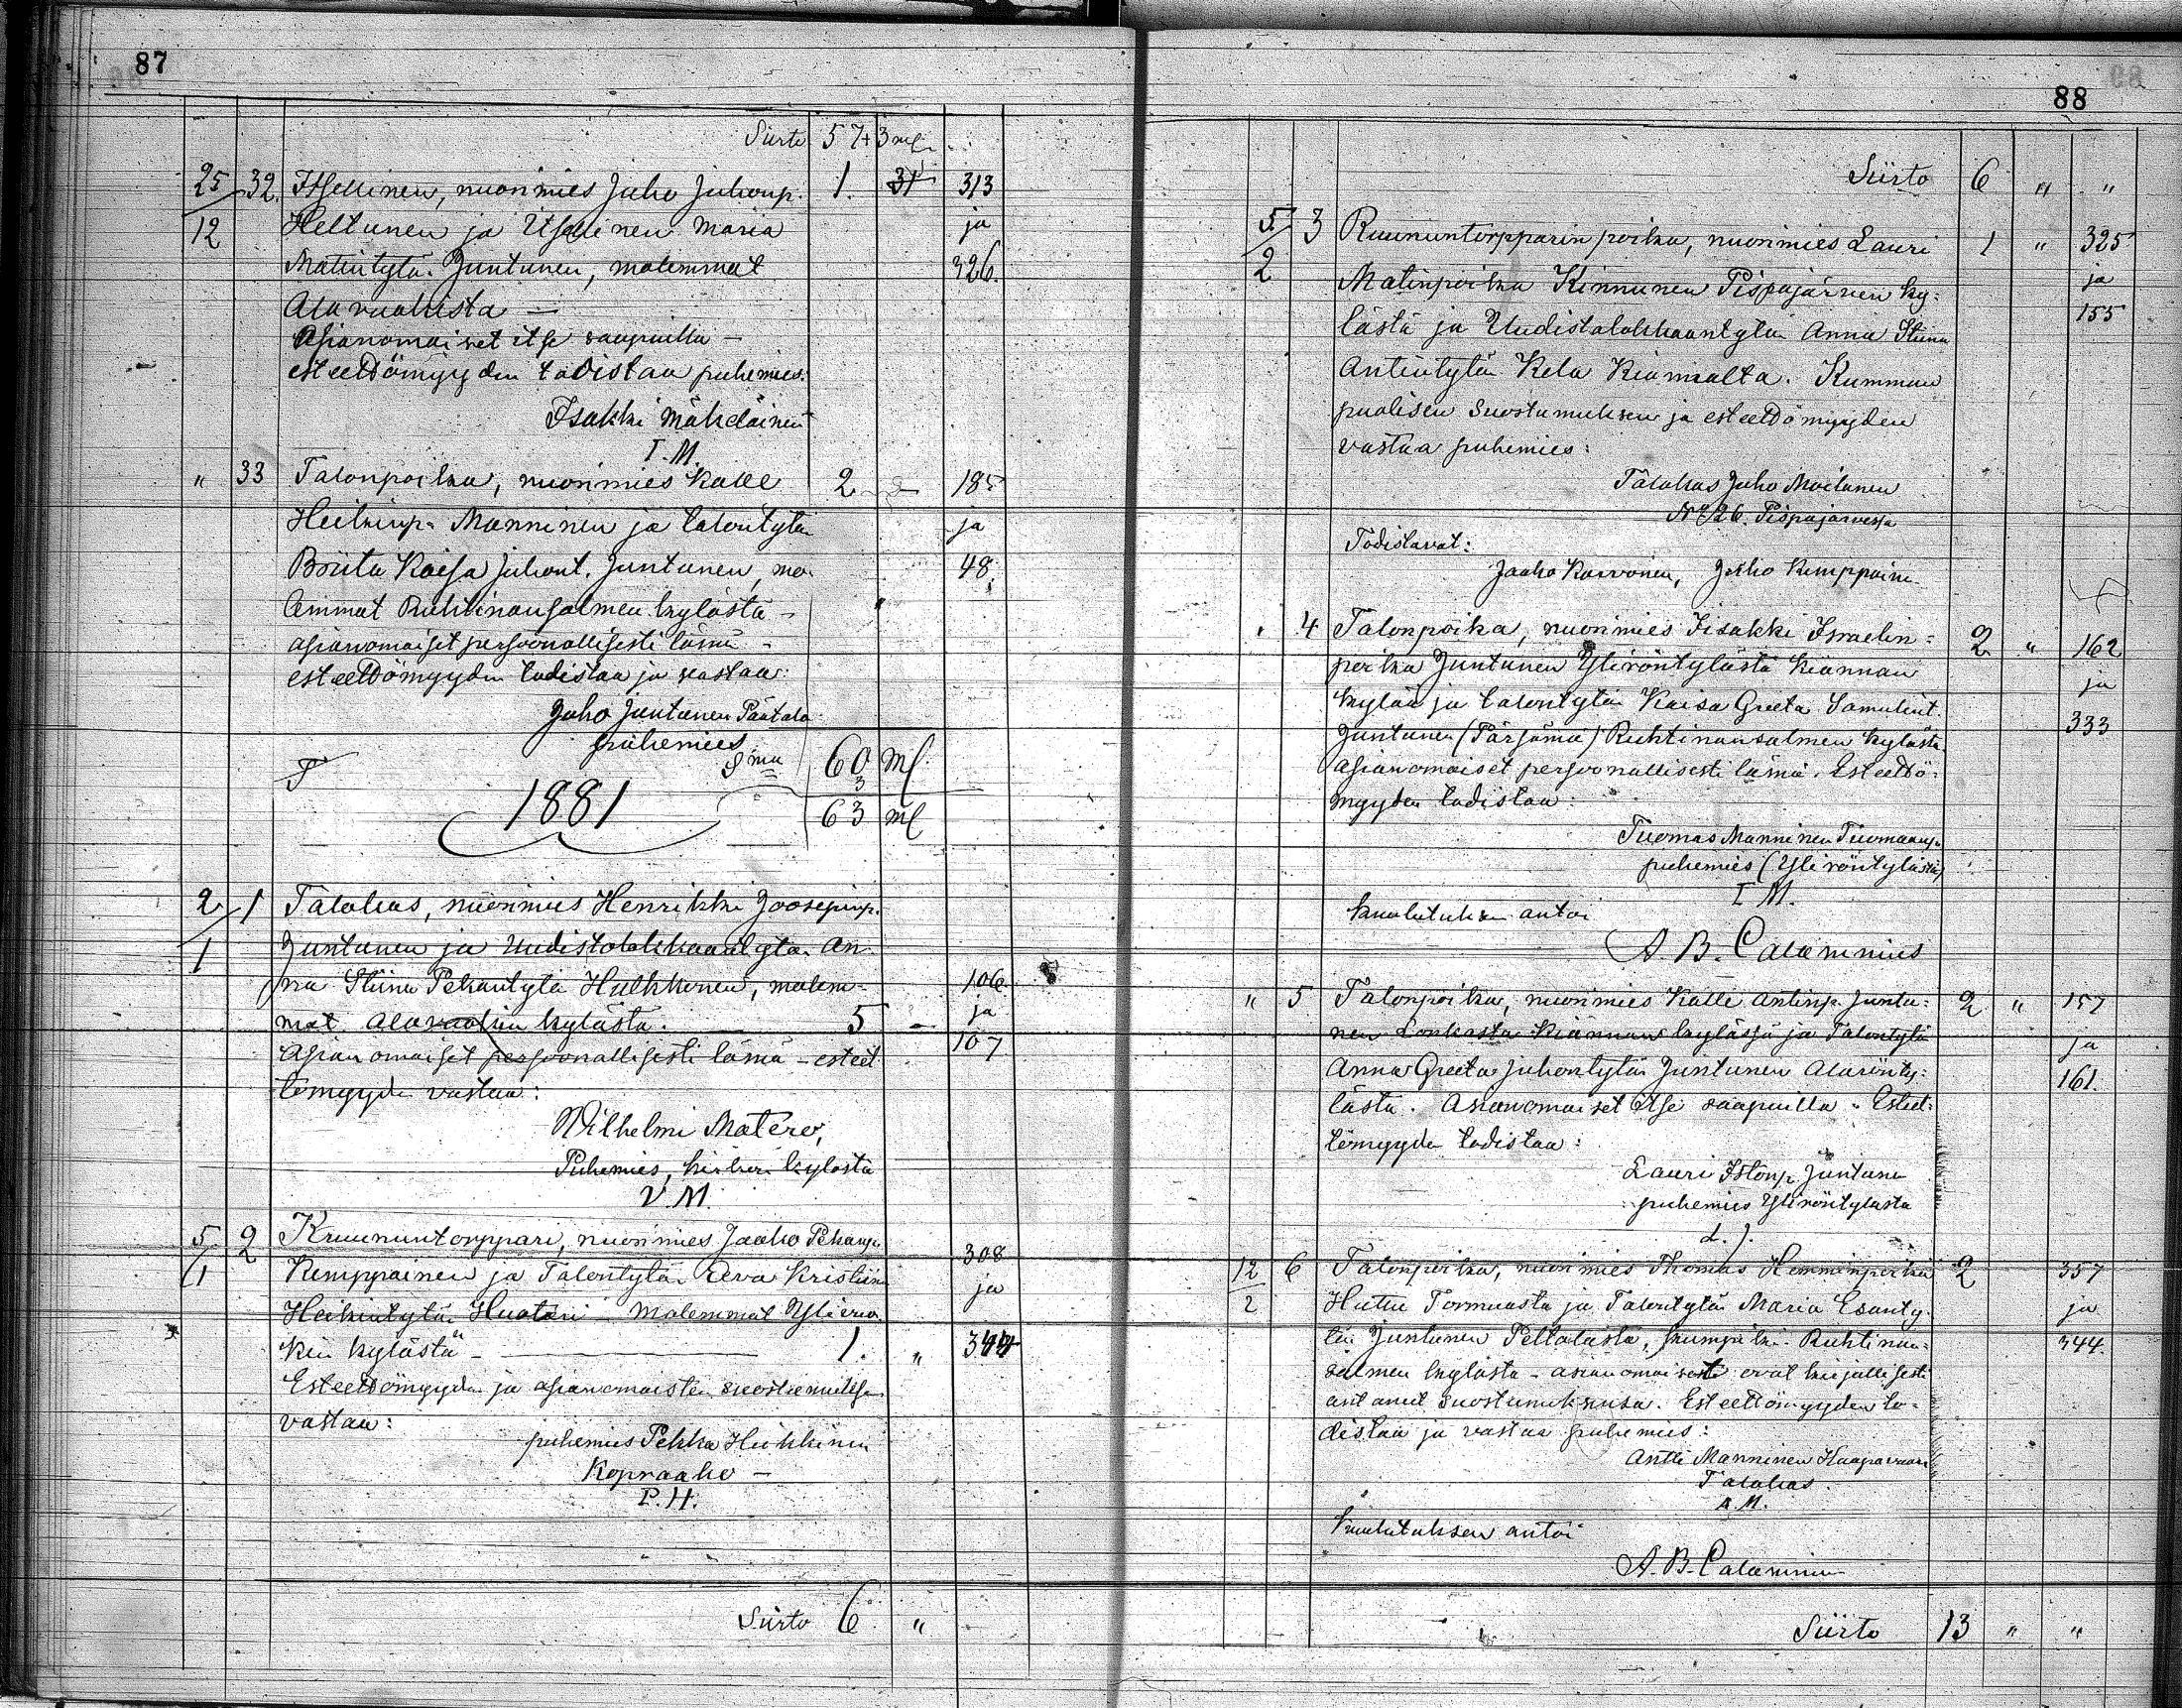 87
Siirto 57+3 mk
25/12 32. Itsellinen, nuorimies Juho Juhonp. 1. 31 313
Heltunen ja Itsellinen Maria ja
Matintytä. Juntunen, molemmat 326.
Alavuokista —
Asianomaiset itse saapuilla —
esteettömyyden todistaa puhemies:
Isakki Mähdäinen
I. M.
" 33 Talonpoika, nuorimies Kalle 2 — 185
Heikinp. Manninen ja talontytä ja
Briita Kaisa Juhont. Juntunen, mo- 48.
lemmat Ruhtinansalmen kylästä —
asianomaiset persoonallisesti läsnä —
esteettömyyden todistaa ja vastaa:
Juho Juntunen Päätalo
puhemies
Sma 60 mk
3
1881 63 mk
2/1 1 Talokas, nuorimies Henrikki Joosepinp.
Juntunen ja Uudistalokkaantytä. An-
na Stiina Pekantytä Hulkkonen, molem- 106
mat Alavuokin kylästä. — 5 — ja
Asianomaiset persoonallisesti läsnä — esteet- 107
tömyyden vastaa:
Wilhelmi Matero,
Puhemies, kirkon kylästä
V. M.
5/1 2 Kruununtorppari, nuorimies Jaako Pekanp.
Kemppainen ja Talontytä. Eeva Kristiina 308
Heikintytä. Huotari — Molemmat Ylivuo- ja
kin kylästä — 1. " 344
Esteettömyyden ja asianomaisten suostumuksen
vastaa:
puhemies Pekka Heikkinen
Kopraaho —
P. H.
Siirto 6 "
88
Siirto 6 " "
5/2 3 Ruununtorpparin poika, nuorimies Lauri 1 " 325
Matinpoika Kinnunen Pispajärven ky- ja
lästä ja Uudistalokkaantytä Anna Stiina 155
Antintytä Kela Kiannalta. Kumman
puolisen suostumuksen ja esteettömyyden
vastaa puhemies:
Talokas Juho Moilanen
No 26. Pispajärvessä
Todistavat:
Jaako Karvonen, Juho Kemppainen
" 4 Talonpoika, nuorimies Iisakki Israelin- 2 " 162
poika Juntunen Yliröntylästä Kiannan ja
kylää ja talontytä Kaisa Greeta Samulint. 333
Juntunen (Pärsämä) Ruhtinansalmen kylästä.
Asianomaiset persoonallisesti läsnä. Esteettö-
myyden todistaa:
Tuomas Manninen Tuomaanp.
puhemies (Yliröntylästä)
T M.
Kuulutuksen antoi
A. B. Calamnius
" 5 Talonpoika, nuorimies Kalle Antinp. Juntu- 2 " 157
nen Lonkasta Kiannan kylässä ja Talontytä ja
Anna Greeta Juhontytä Juntunen Alarönty- 161.
lästä. Asianomaiset itse saapuilla. Esteet-
tömyyden todistaa:
Lauri Juntunen
puhemies Yliröntylästä
L. J.
12/2 6 Talonpoika, nuorimies Thomas Hemminpoika 2 357
Huttu Tormuasta ja Talontytä Maria Esanty- ja
tä Juntunen Peltolasta, kumpikin Ruhtinan- 344.
salmen kylästä — asianomaiset ovat kirjallisesti
antaneet suostumuksensa. Esteettömyyden to-
distaa ja vastaa puhemies:
Antti Manninen Haapavaara
Talokas
A. M.
Kuulutuksen antoi
A. B. Calamnius
Siirto 13 " "